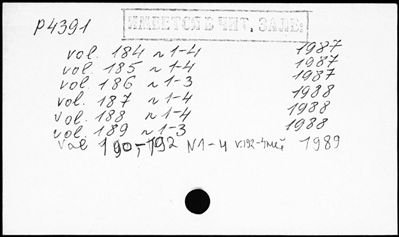 P4391
ИМЕЕТСЯ В ЧИТ. ЗАЛЕ:
vol. 184 n 1-4 1987
vol. 185 n 1-4 1987
vol. 186 n 1-3 1987
vol. 187 n 1-4 1988
vol. 188 n 1-4 1988
vol. 189 n 1-3 1988
vol 190-192 N1-4 v.192-4 1989